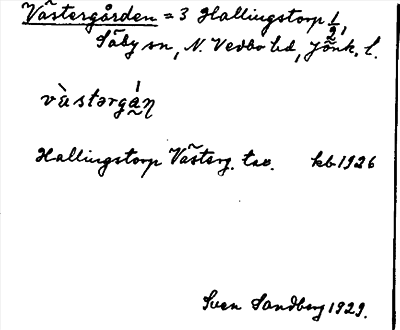 Västergården = 3 Hallingstorp 1/2,
Säby sn, N. Vedbo hd, Jönk. l.
vàstərgán
Hallingstorp Västerg. tax. kb 1926
Sven Sandberg 1929.